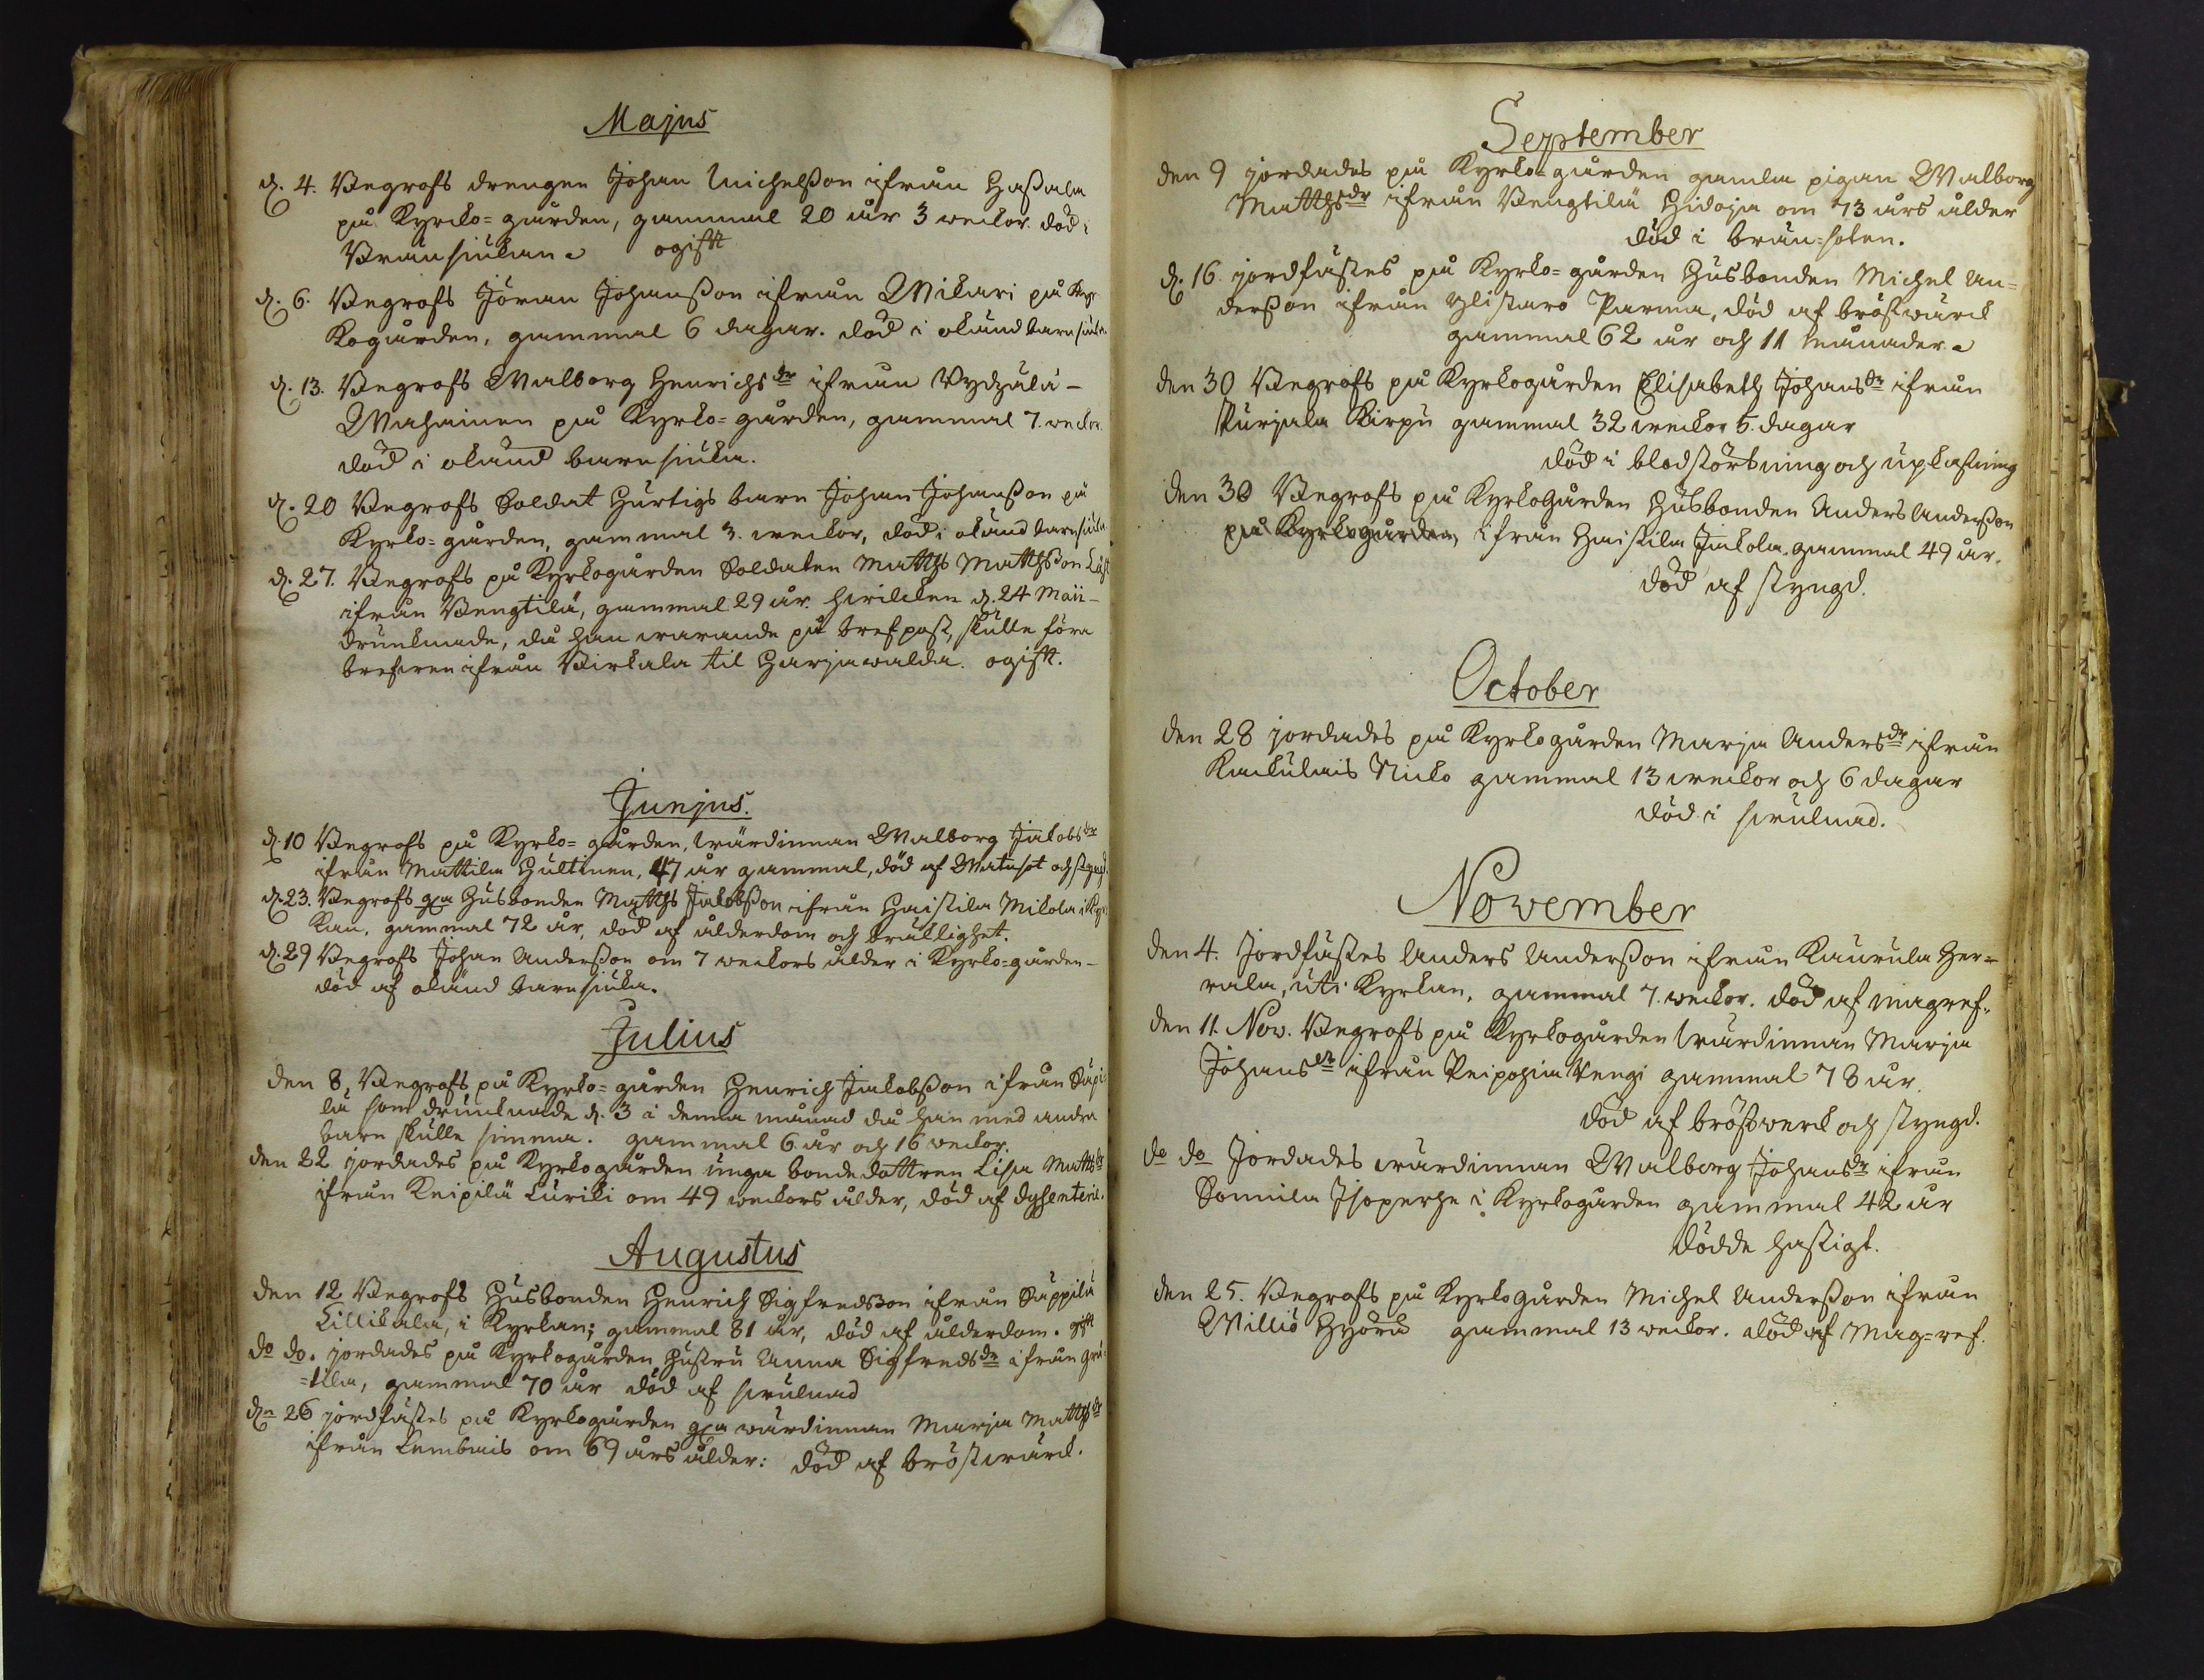 Majus
d. 4. Begrofs drengen Johan Michelsson ifrån Hassala
på Kyrcko=gården, gammal 20 år 3 weckor. död i
Brånsiukan ogift
d. 6. Begrofs Jöran Johansson ifrån Wikari på Kyr
kogården, gammal 6 dagar. död i okänd barnsiuka
d. 13. Begrofs Walborg Henrichsdr ifrån
Wahainen på Kyrko=gården, gammal 7. weckor
död i okänd barnsiuka.
d. 20 Begrofs Soldat Hurtigs barn Johan Johansson på
Kyrko=gården, gammal 3. weckor, död i okänd barnsiuka
d. 27. Begrofs på Kyrkogården Soldaten Matths Matthsson
ifrån Bengtilä, gammal 29 år. hwilcken d. 24 Maii
drunknade, då han warande på brefpost, skulle föra
brefwen ifrån Birkala til Harjawalda. ogift.
Junjus.
d. 10 Begrofs på Kyrko=gården, wärdinnan Walborg Jakobsdr
ifrån Mattila Hultinen, 47 år gammal, död af Watusot och styngd.
d. 23. Begrofs gla Husbonden Matths Jakobsson ifrån Haistila Mikola i Kyr
kan, gammal 72 år, död af ålderdom och bräcklighet.
d. 29 Begrofs Johan Andersson om 7 weckors ålder i Kyrko=gården
död af okänd barnsiuka.
Julius
den 8. Begrofs på Kyrko=gården Henrich Jakobsson ifrån Säpi
lä som drunknade d. 3 i denna månad då han med andra
barn skulle simma. gammal 6 år och 16 weckor.
den 22 jordades på Kyrkogården unga bondedottren Lisa Matthsdr
ifrån Knipilä Luriki om 49 weckors ålder, död af dysenterie.
Augustus
den 12 Begrofs Husbonden Henrich Sigfredsson ifrån Säppilä
Lillikala, i Kyrkan; gammal 81 år, död af ålderdom. gift
do do. jordades på Kyrkogården Hustru Anna Sigfredsdr ifrån
gammal 70 år död af swulnad
dn 26 jordfästes på Kyrkogården gla wärdinnan Marja Matthsdr
ifrån Lembais om 69 års ålder: död af bröstwärck.
September
den 9 jordades på Kyrko=gården gamla pigan Walborg
Matthsdr ifrån Bengtilä Hidoja om 73 års ålder
död i brän=soten.
d. 16. jordfästes på Kyrko=gården Husbonden Michel An=
dersson ifrån Ylistaro Parma, död af bröstwärck
gammal 62 år och 11 månader.
den 30 Begrofs på Kyrkogården Elisabeth Johansdr ifrån
Purjala Kirpu gammal 32 weckor 5. dagar
död i blodstörtning och upkastning
den 30 Begrofs på Kyrkogården Husbonden Anders Andersson
på Kyrkogården, ifrån Haistila Jakola. gammal 49 år.
död af styngd.
October
den 28 jordades på Kyrkogården Marja Andersdr ifrån
Kackulais Nicko gammal 13 weckor och 6 dagar
död i swulnad.
November
den 4. Jordfästes Anders Andersson ifrån Kaurula Her=
rala, uti Kyrkan, gammal 7. weckor. död af magref.
den 11. Nov. Begrofs på Kyrkogården wärdinnan Marja
Johansdr ifrån Peipohja Kengi gammal 78 år.
död af bröstwerck och styngd.
do do Jordades wärdinnan Walborg Johansdr ifrån
Somila Isoperhe i Kyrkogården gammal 42 år
dödde hastigt.
den 25. Begrofs på Kyrkogården Michel Andersson ifrån
Williö Hyörä gammal 13 weckor. död af Mag=ref.